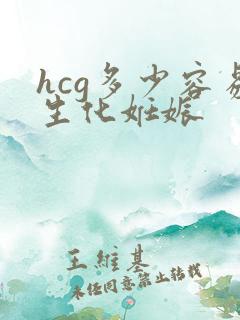 hcg多少容易
生化妊娠
王维基
未经同意禁止转载